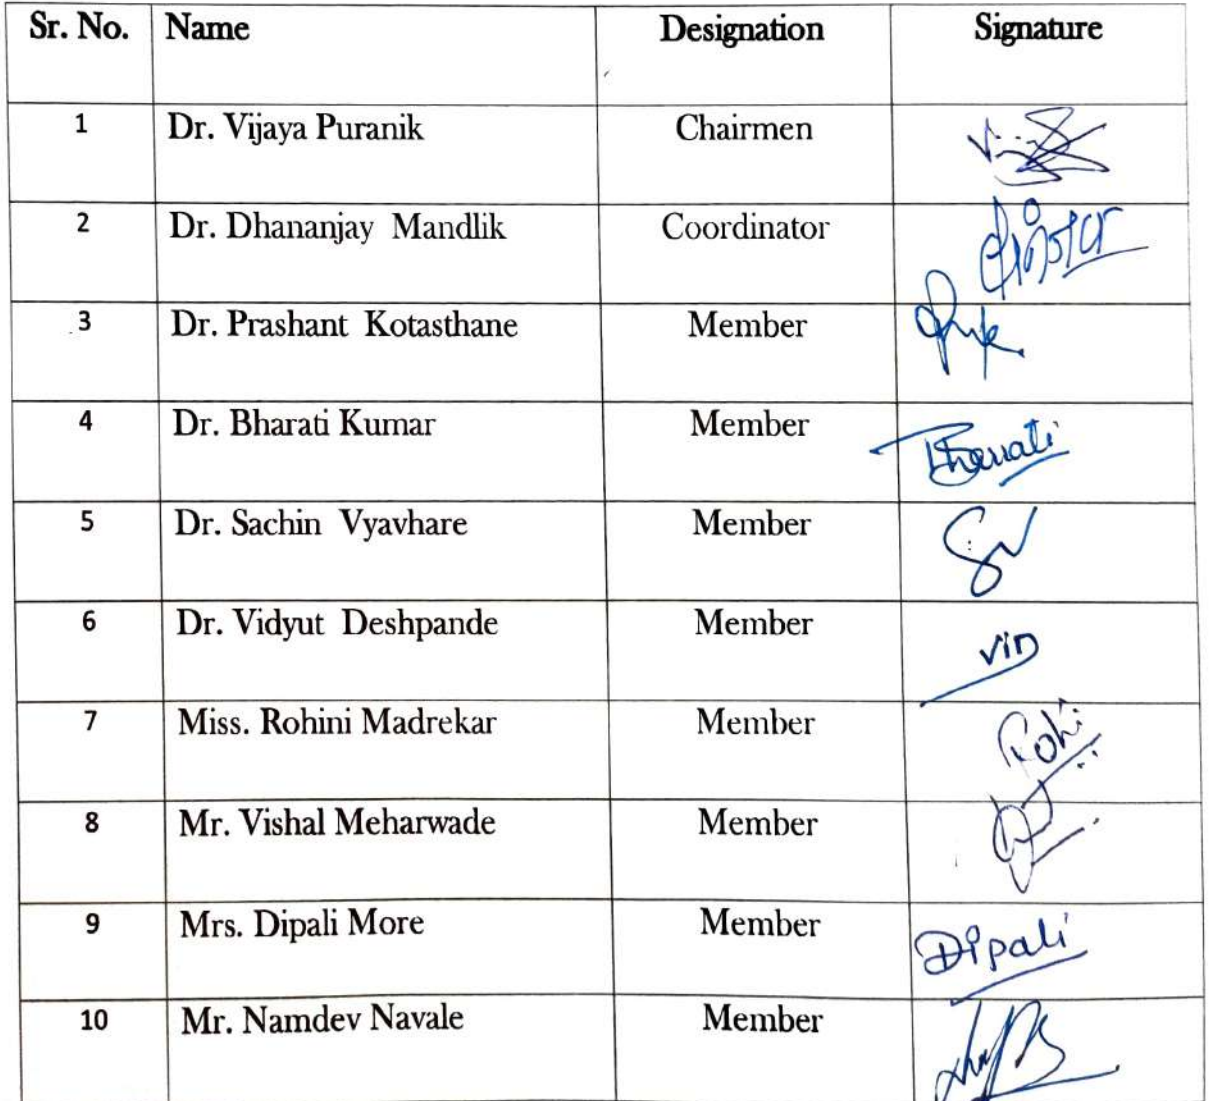 Sr. No. Name Designation Signature
1 Dr. Vijaya Puranik Chairmen
2 Dr. Dhananjay Mandlik Coordinator
3 Dr. Prashant Kotasthane Member
4 Dr. Bharati Kumar Member Bharati
5 Dr. Sachin Vyavhare Member
6 Dr. Vidyut Deshpande Member VID
7 Miss. Rohini Madrekar Member Rohi
8 Mr. Vishal Meharwade Member
9 Mrs. Dipali More Member Dipali
10 Mr. Namdev Navale Member